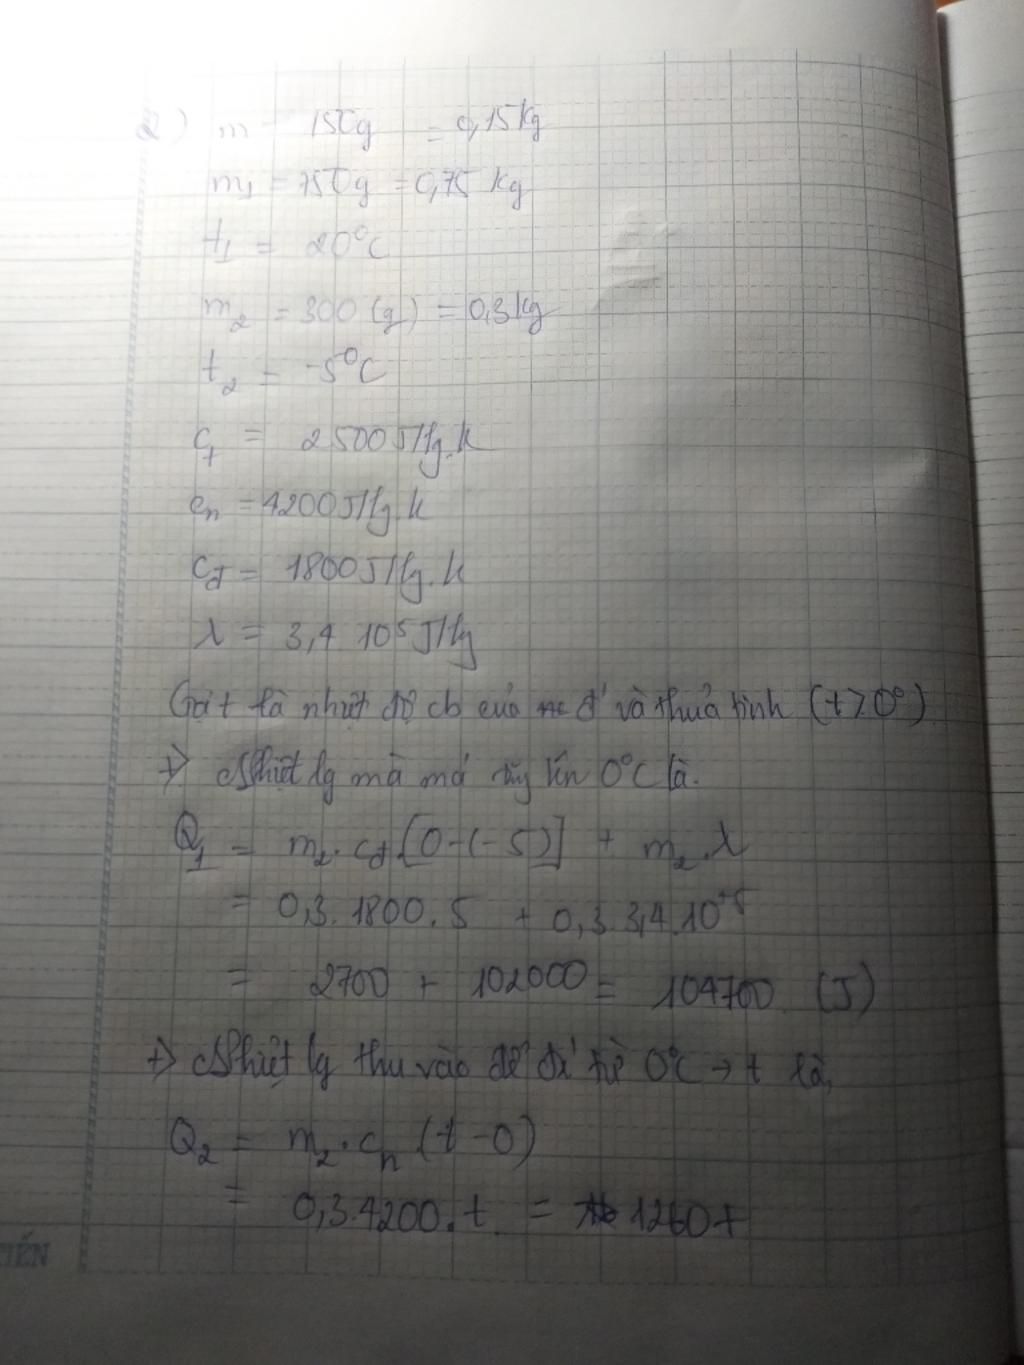 2) m = 150g = 0,15kg
m₁ = 750g = 0,75 kg
t₁ = 20°C
m₂ = 300 (g) = 0,3kg
t₂ = -5°C
c₁ = 2500J/kg.k
cₙ = 4200J/kg.k
cđ = 1800J/kg.k
λ = 3,4 10⁵J/kg
Gọi t là nhiệt độ cb của đ và thuả tinh (t > 0°)
+> Nhiệt lg mà mđ lên 0°C là.
Q₁ = m₂.cđ[0-(-5)] + m₂.λ
= 0,3.1800.5 + 0,3.3,4.10⁺⁵
= 2700 + 102000 = 104700 (J)
+> Nhiệt lg thu vào để đá từ 0°C → t là,
Q₂ = m₂.cₙ (t-0)
= 0,3.4200.t = 1260t
TIẾN